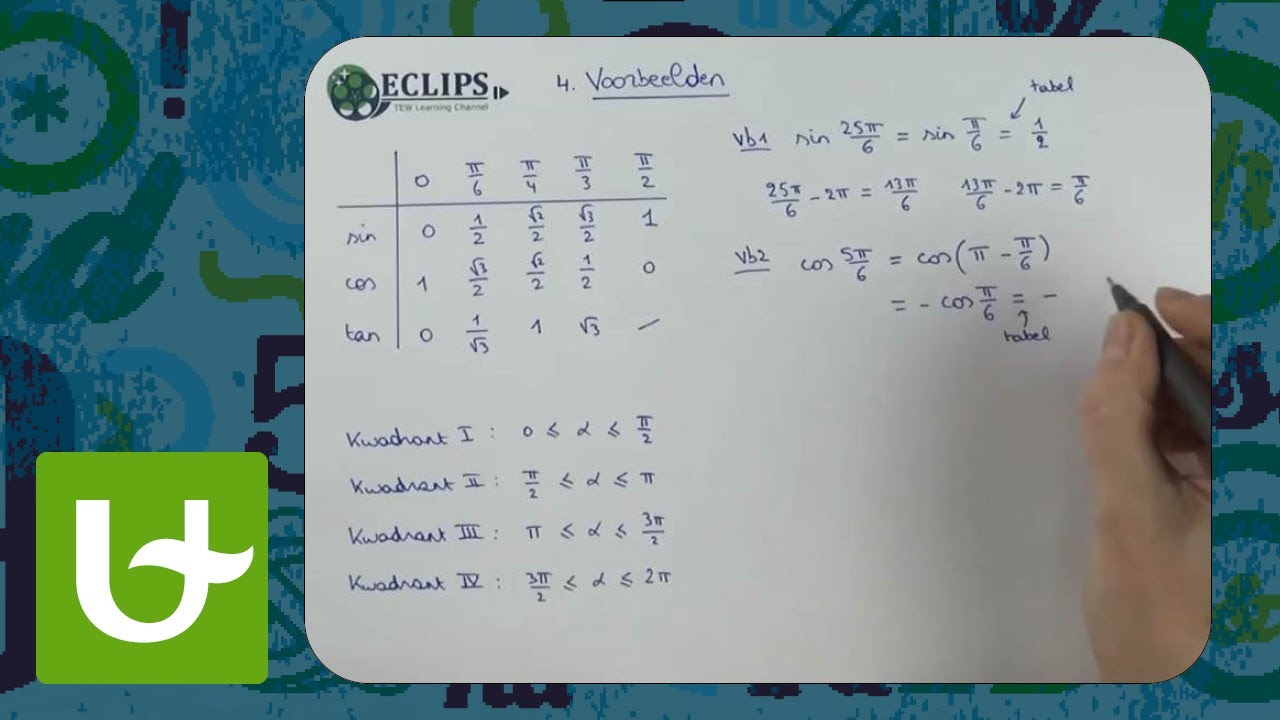 ECLIPS
TEW Learning Channel
4. Voorbeelden
0 π/6 π/4 π/3 π/2
sin 0 1/2 √2/2 √3/2 1
cos 1 √3/2 √2/2 1/2 0
tan 0 1/√3 1 √3 –
Kwadrant I : 0 ≤ α ≤ π/2
Kwadrant II : π/2 ≤ α ≤ π
Kwadrant III : π ≤ α ≤ 3π/2
Kwadrant IV : 3π/2 ≤ α ≤ 2π
tabel
vb1 sin 25π/6 = sin π/6 = 1/2
25π/6 - 2π = 13π/6 13π/6 - 2π = π/6
vb2 cos 5π/6 = cos(π - π/6)
= - cos π/6 = -
tabel